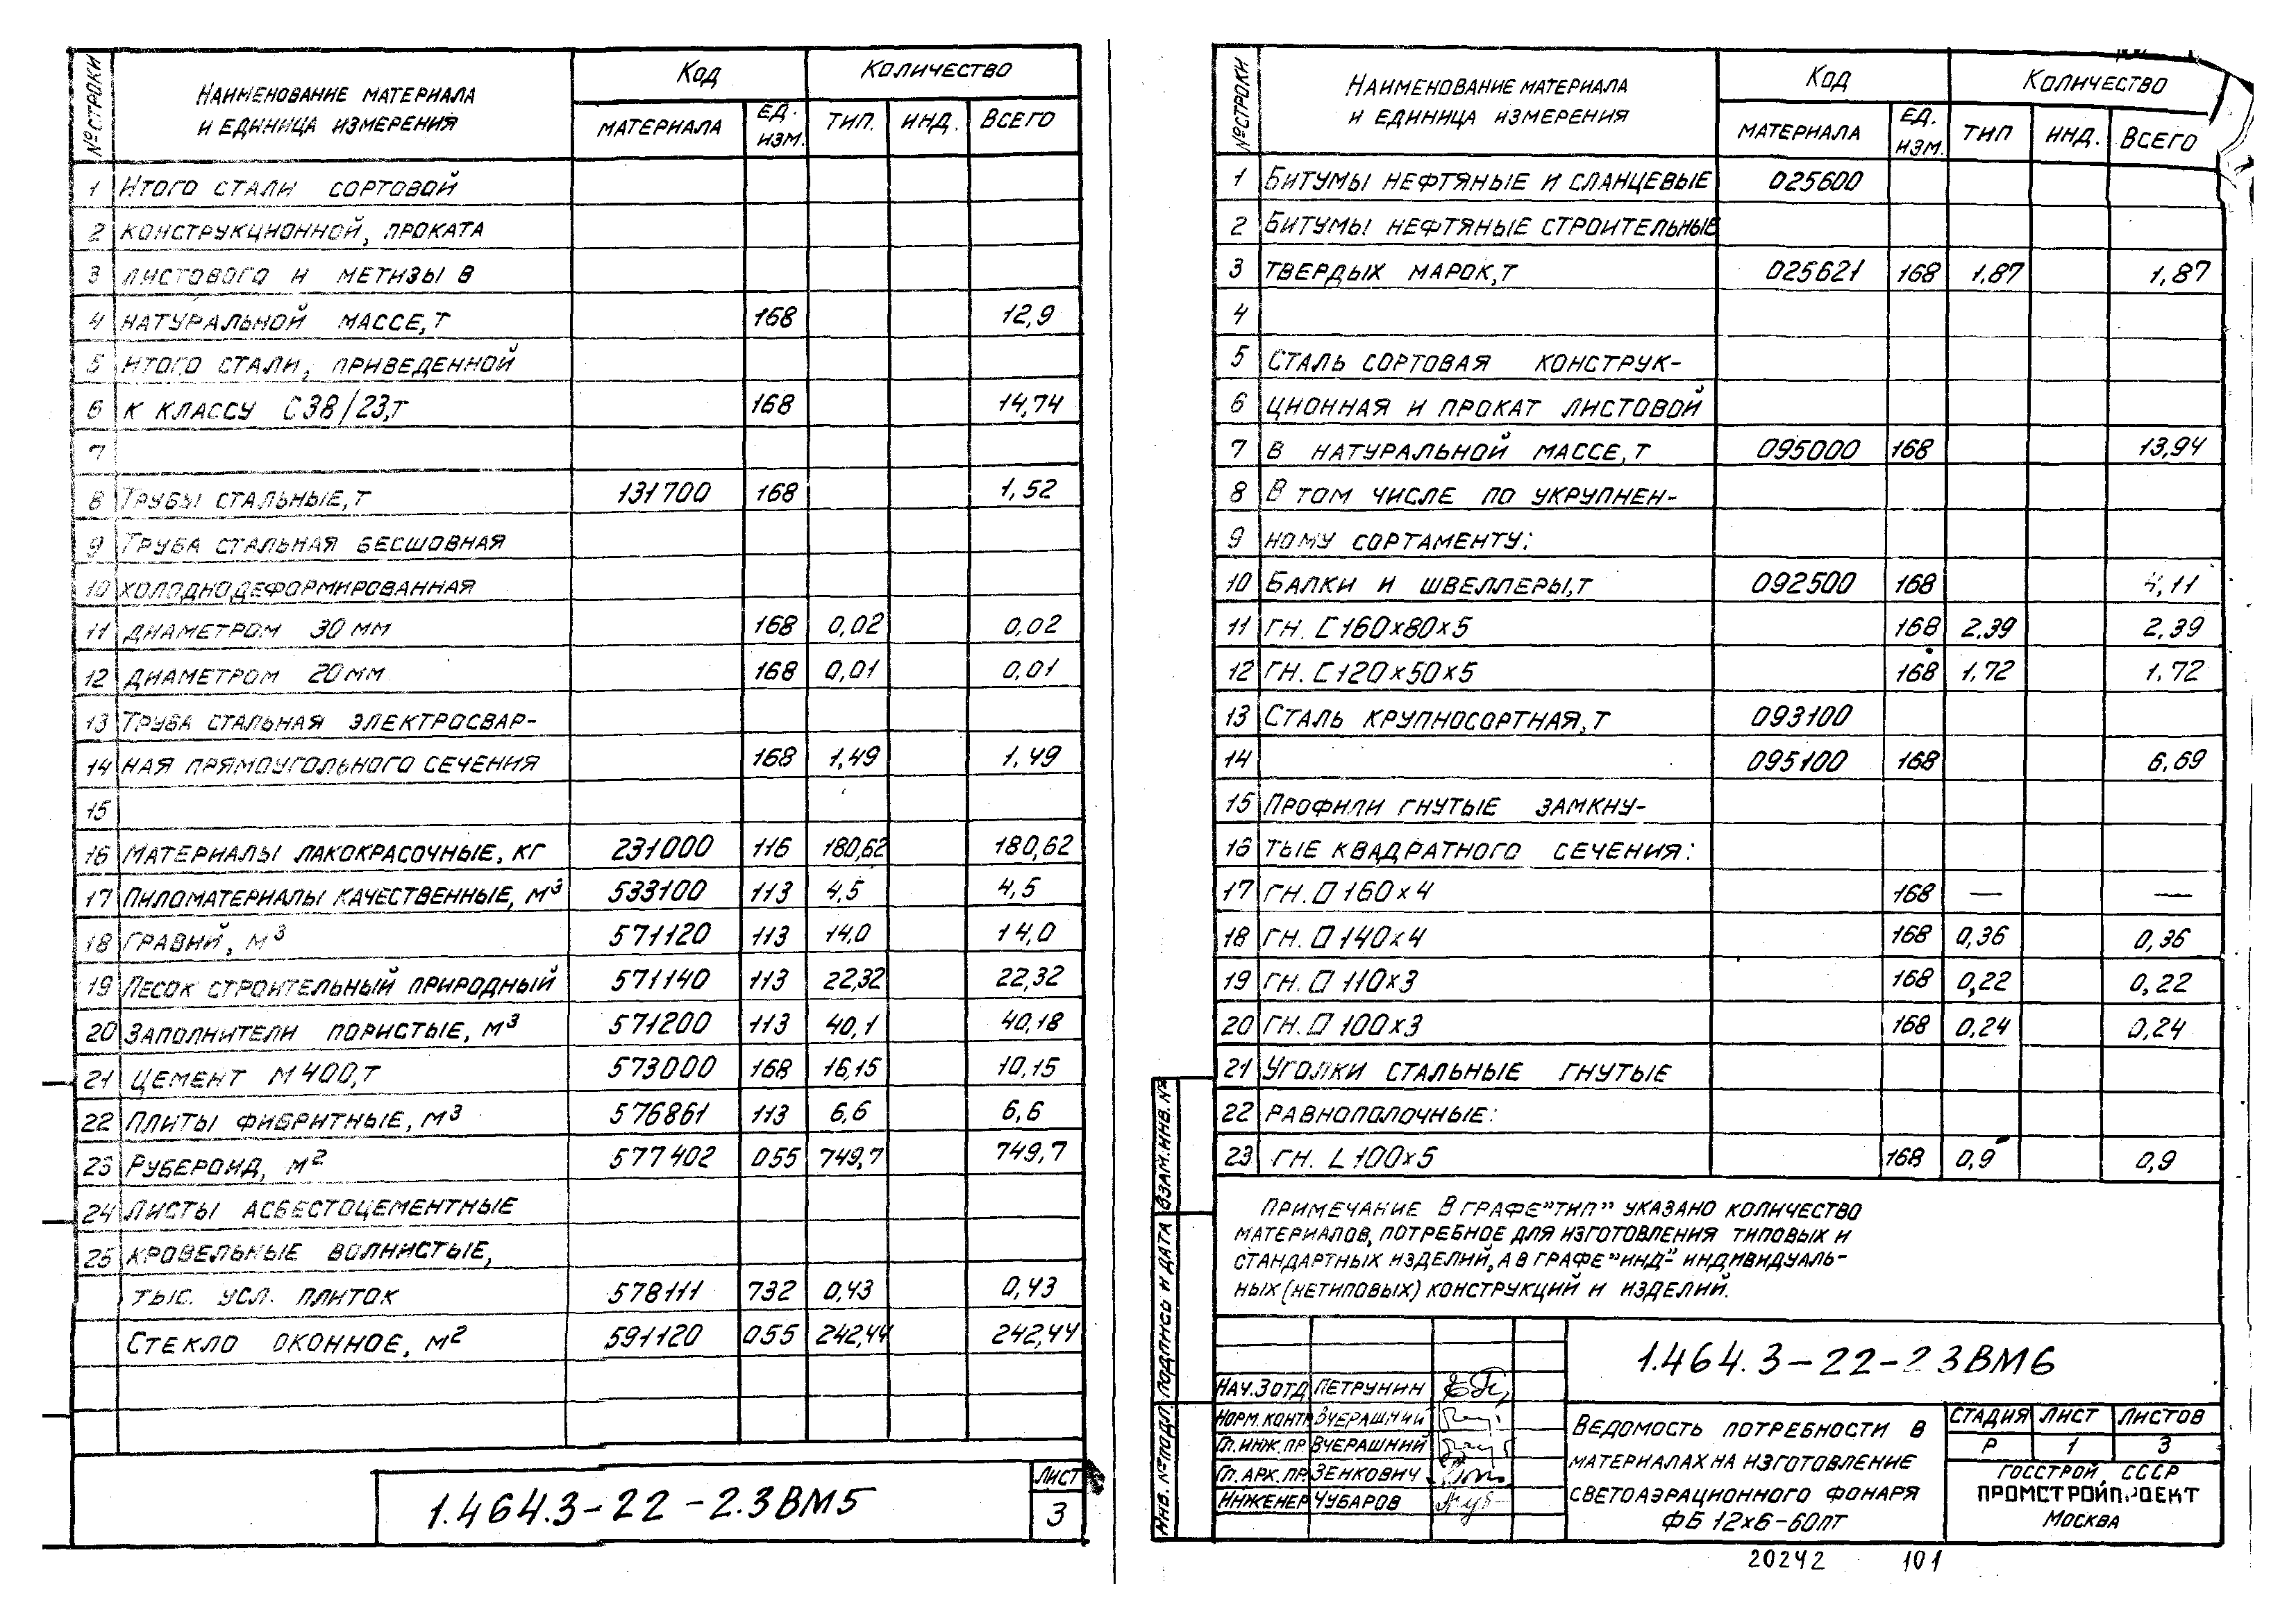 № строки Наименование материала и единица измерения Код Количество
материала ед. изм. тип. инд. всего
1 Итого стали сортовой
2 конструкционной, проката
3 листового и метизы в
4 натуральной массе, т 168 12,9
5 итого стали, приведенной
6 к классу С38/23, т 168 14,74
7
8 Трубы стальные, т 131700 168 1,52
9 Труба стальная бесшовная
10 холоднодеформированная
11 диаметром 30 мм 168 0,02 0,02
12 диаметром 20 мм 168 0,01 0,01
13 Труба стальная электросвар-
14 ная прямоугольного сечения 168 1,49 1,49
15
16 Материалы лакокрасочные, кг 231000 116 180,62 180,62
17 Пиломатериалы качественные, м³ 533100 113 4,5 4,5
18 Гравий, м³ 571120 113 14,0 14,0
19 Песок строительный природный 571140 113 22,32 22,32
20 Заполнители пористые, м³ 571200 113 40,1 40,18
21 Цемент М400, т 573000 168 16,15 10,15
22 Плиты фибритные, м³ 576861 113 6,6 6,6
23 Рубероид, м² 577402 055 749,7 749,7
24 Листы асбестоцементные
25 кровельные волнистые,
тыс. усл. плиток 578111 732 0,43 0,43
Стекло оконное, м² 591120 055 242,44 242,44
1.464.3-22-2.3ВМ5
Лист
3
№ строки Наименование материала и единица измерения Код Количество
материала ед. изм. тип инд. всего
1 Битумы нефтяные и сланцевые 025600
2 Битумы нефтяные строительные
3 твердых марок, т 025621 168 1,87 1,87
4
5 Сталь сортовая конструк-
6 ционная и прокат листовой
7 в натуральной массе, т 095000 168 13,94
8 В том числе по укрупнен-
9 ному сортаменту:
10 Балки и швеллеры, т 092500 168 4,11
11 гн. [ 160×80×5 168 2.39 2,39
12 гн. [ 120×50×5 168 1,72 1.72
13 Сталь крупносортная, т 093100
14 095100 168 6.69
15 Профили гнутые замкну-
16 тые квадратного сечения:
17 гн. □ 160×4 168 — —
18 гн. □ 140×4 168 0,36 0,36
19 гн. □ 110×3 168 0,22 0,22
20 гн. □ 100×3 168 0,24 0,24
21 Уголки стальные гнутые
22 равнополочные:
23 гн. L 100×5 168 0,9 0,9
Примечание В графе "тип" указано количество
материалов, потребное для изготовления типовых и
стандартных изделий, а в графе "инд"- индивидуаль-
ных (нетиповых) конструкций и изделий.
Инв. № подл. Подпись и дата Взам. инв. №
1.464.3-22-2.3ВМ6
Нач. 3 отд Петрунин
Норм. контр Вчерашний
Гл. инж. пр. Вчерашний
Гл. арх. пр. Зенкович
Инженер Чубаров
Ведомость потребности в
материалах на изготовление
светоаэрационного фонаря
ФБ 12×6-60пт
Стадия Лист Листов
Р 1 3
Госстрой СССР
ПРОМСТРОЙПРОЕКТ
Москва
20242 101